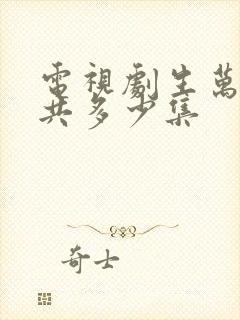 電視劇生萬
共多少集
奇士